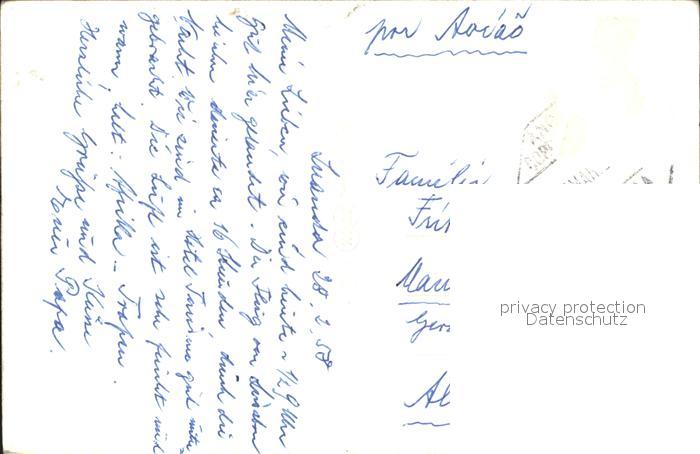 Luanda 28. 2. 58
Meine Lieben, wir sind heute ½ 9 Uhr
gut hier gelandet. Der Flug von Lissabon
hierher dauerte ca 16 Stunden, durch die
Nacht. Wir sind im Hotel gut unter-
gebracht. Die Luft ist sehr feucht und
warm, halt: Afrika - Tropen.
Herzliche Grüße und Küsse
Euer Papa.
por Avião
Familie
Man
Ger
Al
privacy protection
Datenschutz